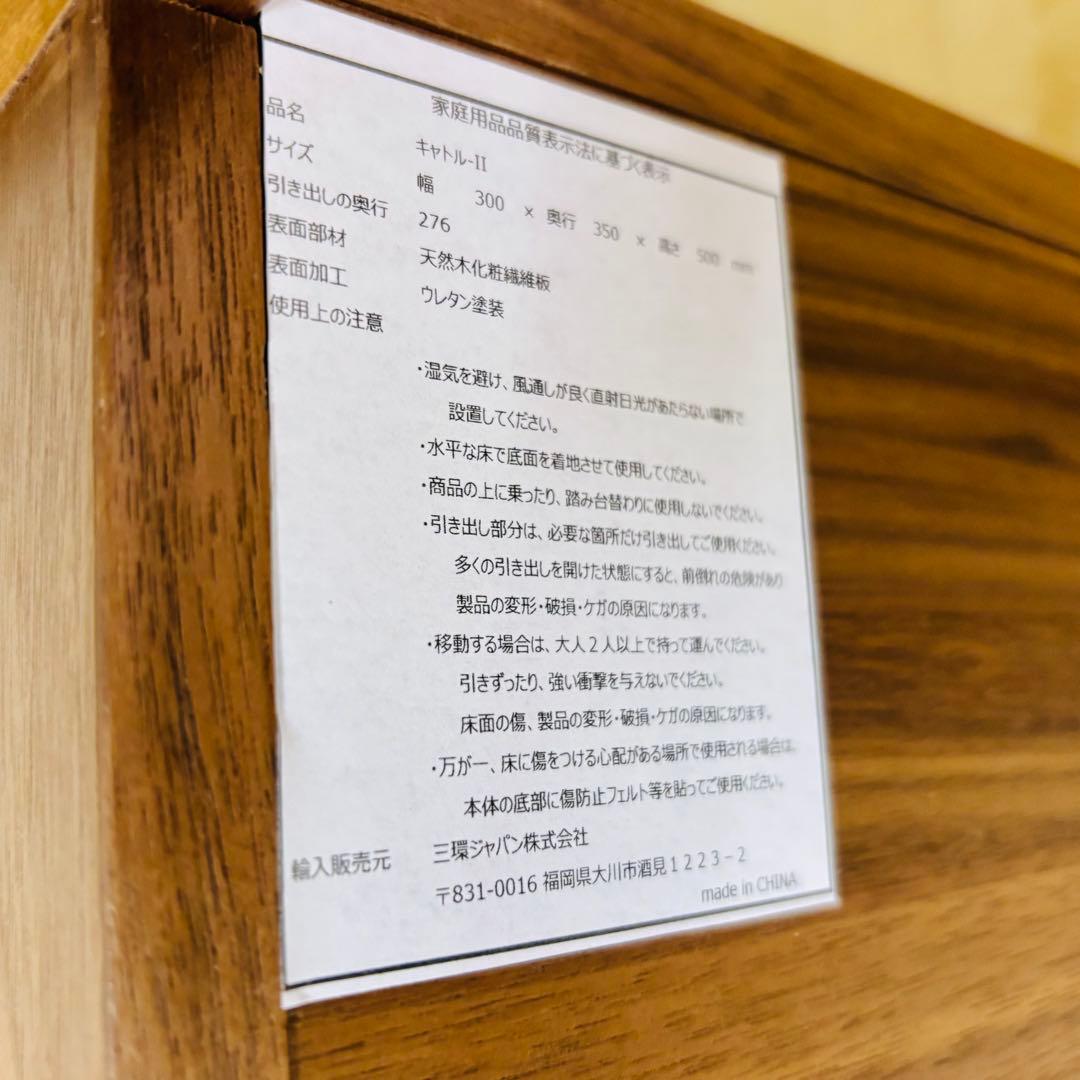 家庭用品品質表示法に基づく表示
品名 キャトル-II
サイズ 幅 300 × 奥行 350 × 高さ 500 mm
引き出しの奥行 276
表面部材 天然木化粧繊維板
表面加工 ウレタン塗装
使用上の注意
・湿気を避け、風通しが良く直射日光があたらない場所で
設置してください。
・水平な床で底面を着地させて使用してください。
・商品の上に乗ったり、踏み台替わりに使用しないでください。
・引き出し部分は、必要な箇所だけ引き出してご使用ください。
多くの引き出しを開けた状態にすると、前倒れの危険があり
製品の変形・破損・ケガの原因になります。
・移動する場合は、大人２人以上で持って運んでください。
引きずったり、強い衝撃を与えないでください。
床面の傷、製品の変形・破損・ケガの原因になります。
・万が一、床に傷をつける心配がある場所で使用される場合は、
本体の底部に傷防止フェルト等を貼ってご使用ください。
輸入販売元 三環ジャパン株式会社
〒831-0016 福岡県大川市酒見１２２３－２
made in CHINA